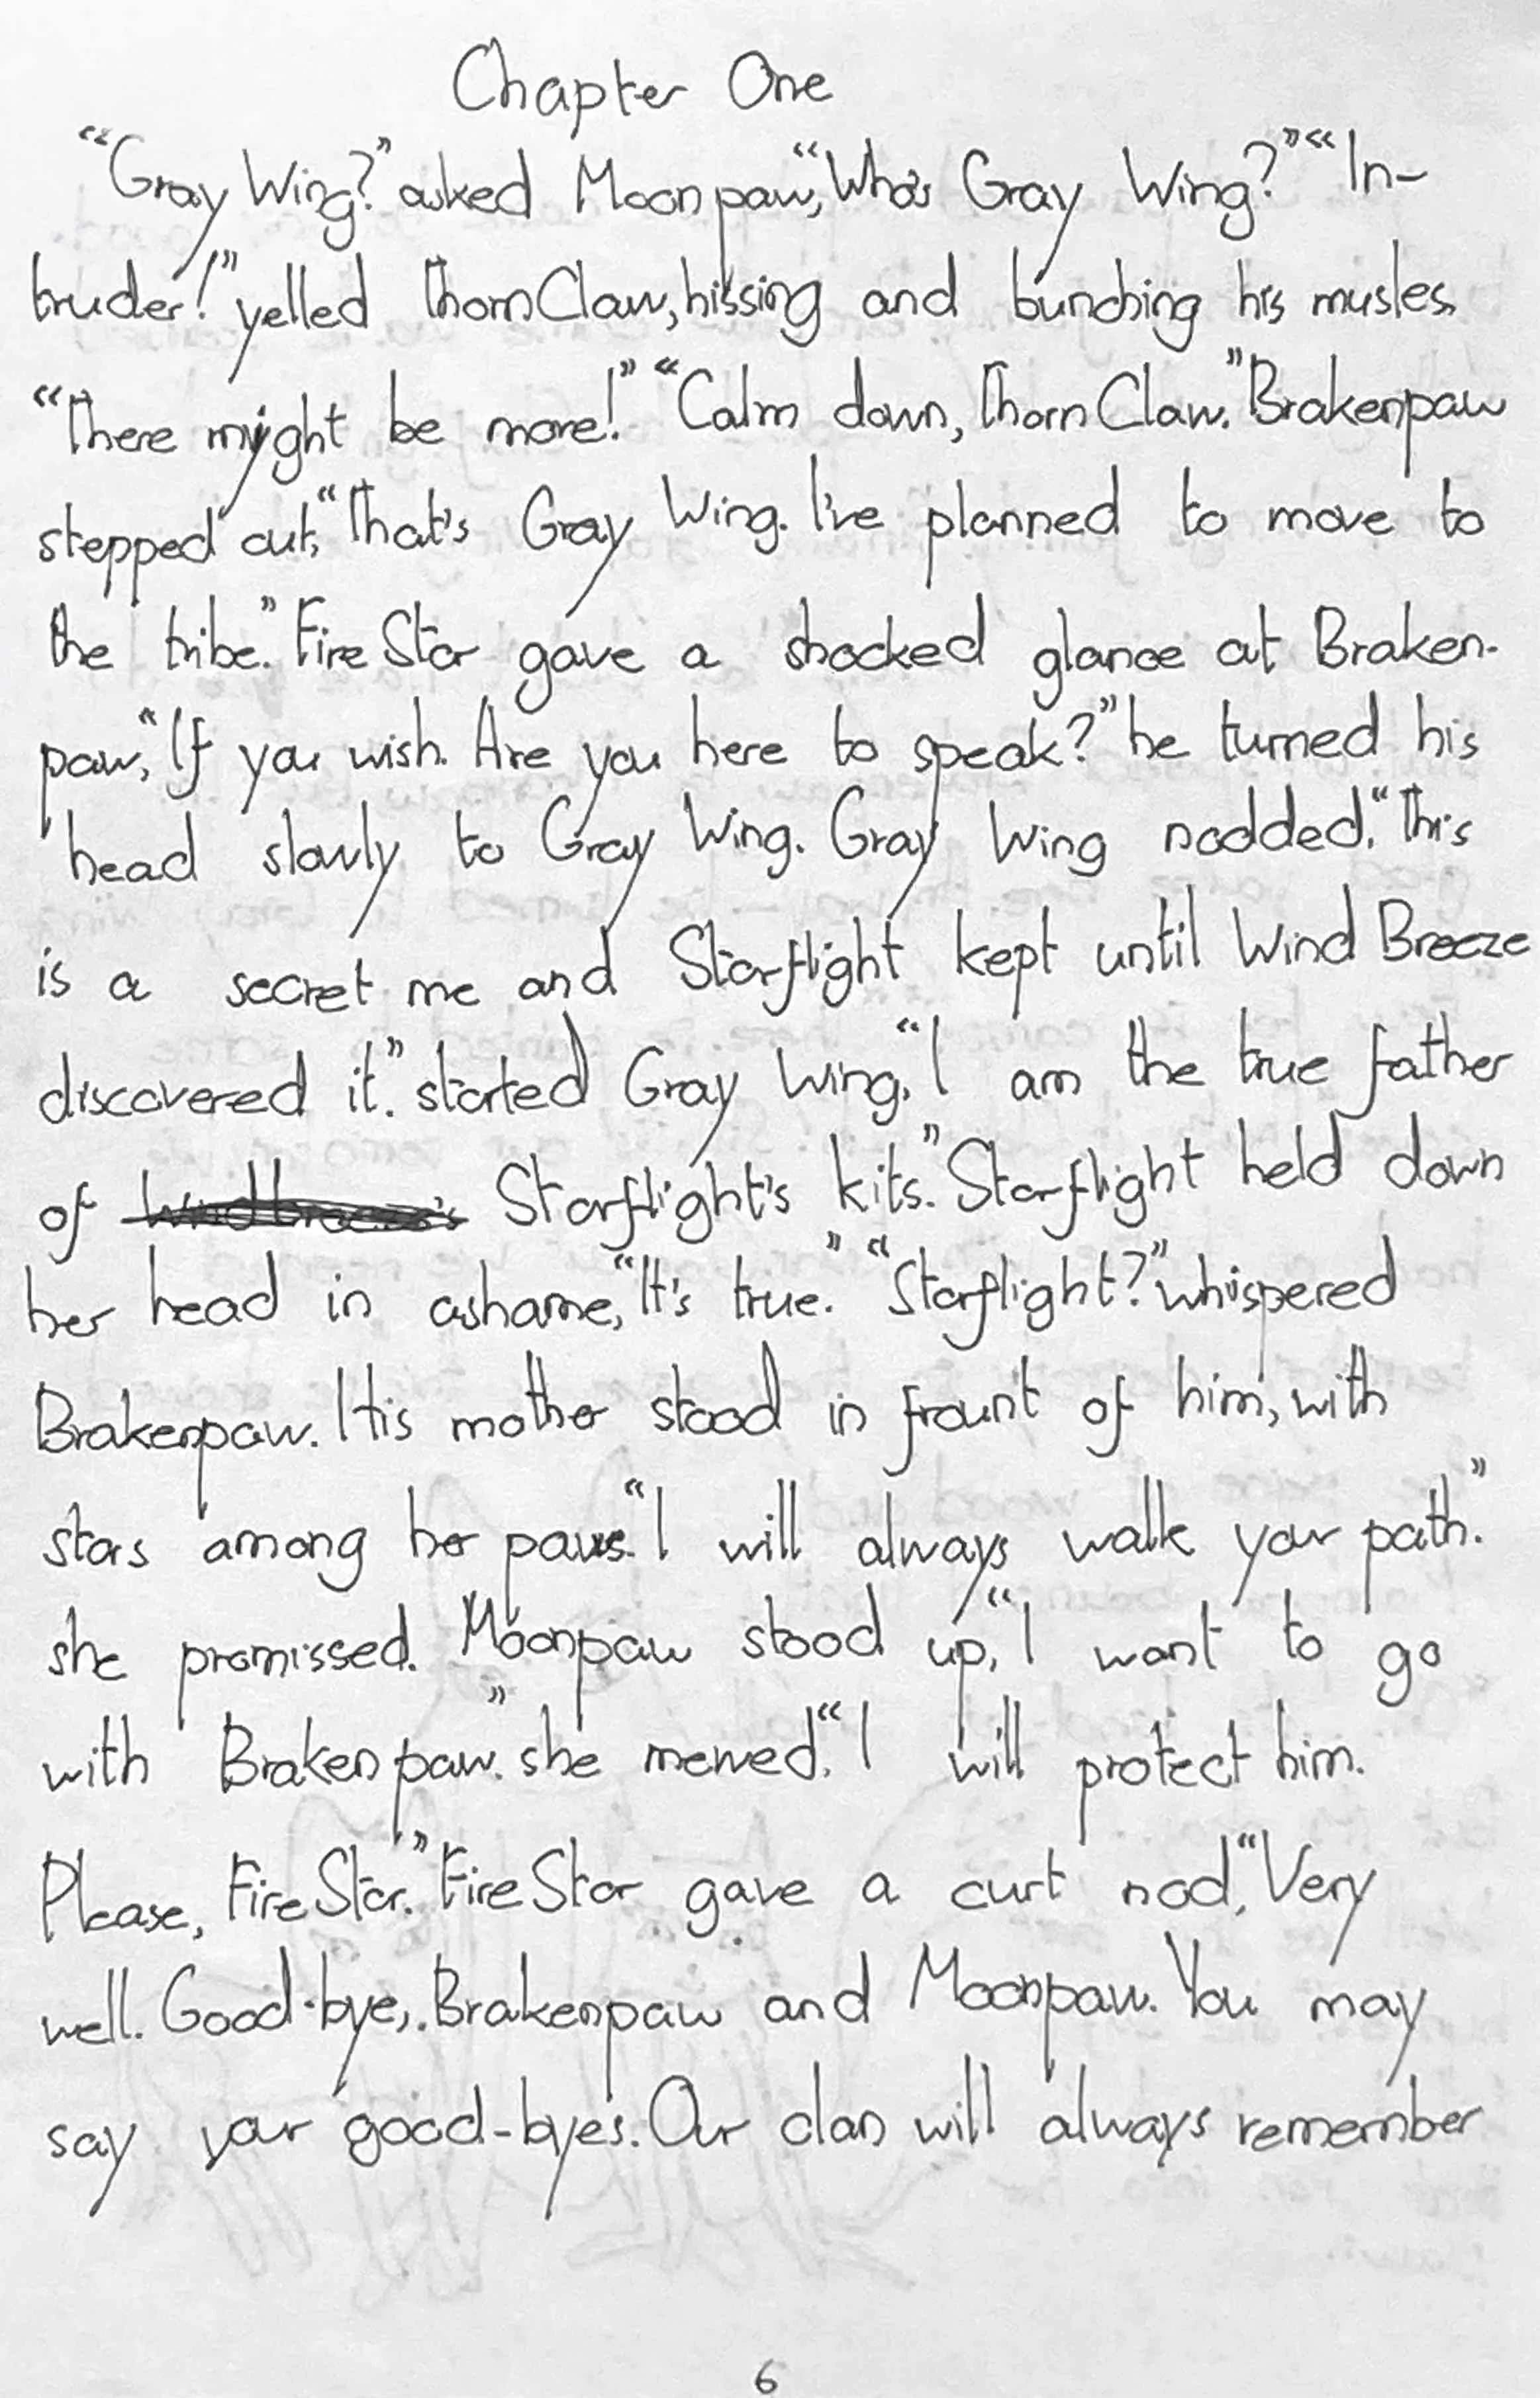 Chapter One
"Gray Wing?" asked Moonpaw, "Who's Gray Wing?" "In-
truder!" yelled ThornClaw, hissing and bunching his musles.
"There might be more!" "Calm down, ThornClaw." Brakenpaw
stepped out, "That's Gray Wing. I've planned to move to
the tribe." FireStar gave a shocked glance at Braken-
paw, "If you wish. Are you here to speak?" he turned his
head slowly to Gray Wing. Gray Wing nodded, "This
is a secret me and Starflight kept until Wind Breeze
discovered it." started Gray Wing, "I am the true father
of Starflight's kits." Starflight held down
her head in ashame, "It's true." "Starflight?" whispered
Brakenpaw. His mother stood in frount of him, with
stars among her paws. "I will always walk your path."
she promissed. Moonpaw stood up, "I want to go
with Brakenpaw." she mewed, "I will protect him.
Please, FireStar." FireStar gave a curt nod, "Very
well. Good-bye, Brakenpaw and Moonpaw. You may
say your good-byes. Our clan will always remember
6